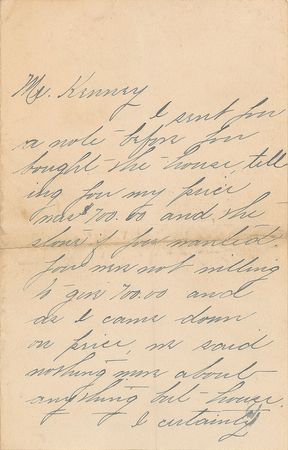 Mr. Kenney
I sent you
a note before you
bought the house tell
ing you my price
was $700.00 and the
stove if you wanted
you was not willing
to give 700.00 and
as I came down
on price, we said
nothing more about
anything but house.
I certainly